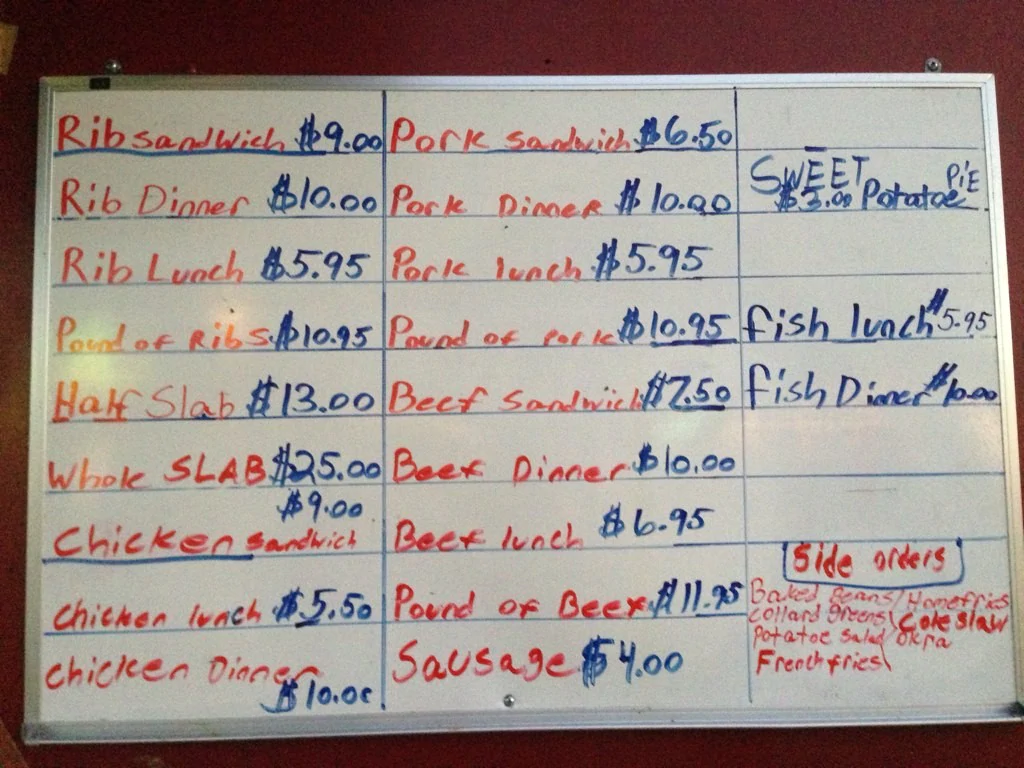 Rib sandwich $9.00
Rib Dinner $10.00
Rib Lunch $5.95
Pound of Ribs $10.95
Half Slab $13.00
Whole SLAB $25.00
$9.00
Chicken sandwich
Chicken lunch $5.50
Chicken Dinner
$10.00
Pork sandwich $6.50
Pork Dinner $10.00
Pork lunch $5.95
Pound of Pork $10.95
Beef Sandwich $7.50
Beef Dinner $10.00
Beef lunch $6.95
Pound of Beef $11.95
Sausage $4.00
SWEET PiE
$3.00 Potatoe
fish lunch $5.95
fish Dinner $10.00
Side orders
Baked Beans/Homefries
Collard greens\Cole Slaw
Potatoe Salad/Okra
French fries\